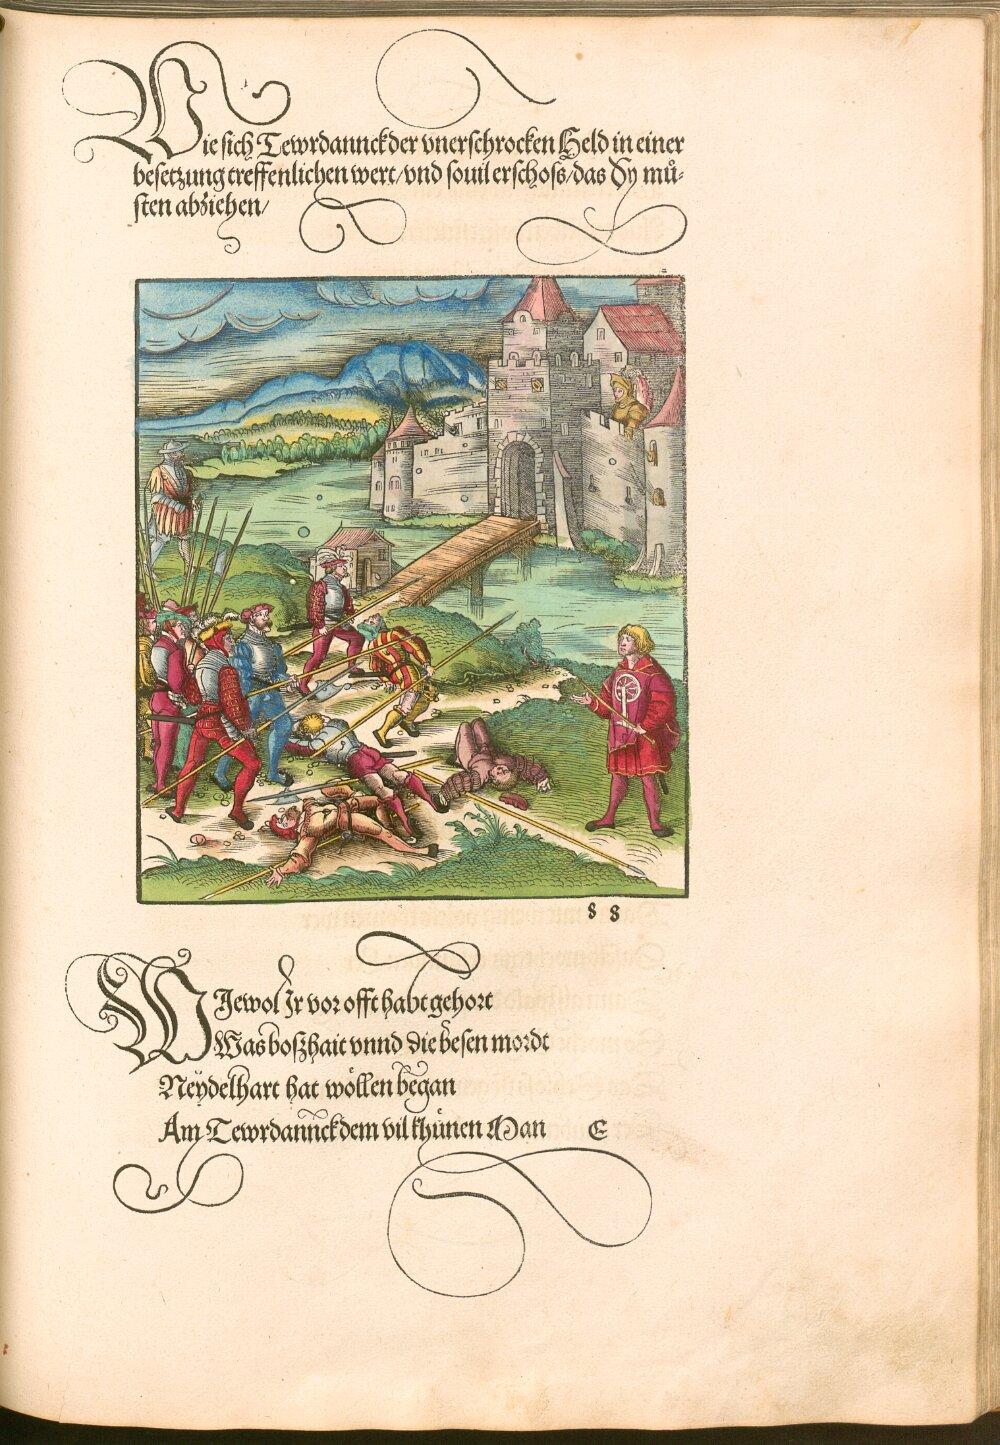 Wie sich Tewrdannck der vnerschrocken Held in einer
besetzung treffenlichen wert/ vnd souil erschoss/ das Sy mů⸗
sten abziehen/
88
WIewol Ir vor offt habt gehort
Was boszhait vnnd die besen mordt
Neydelhart hat wöllen began
Am Tewrdannck dem vil khünen Man E